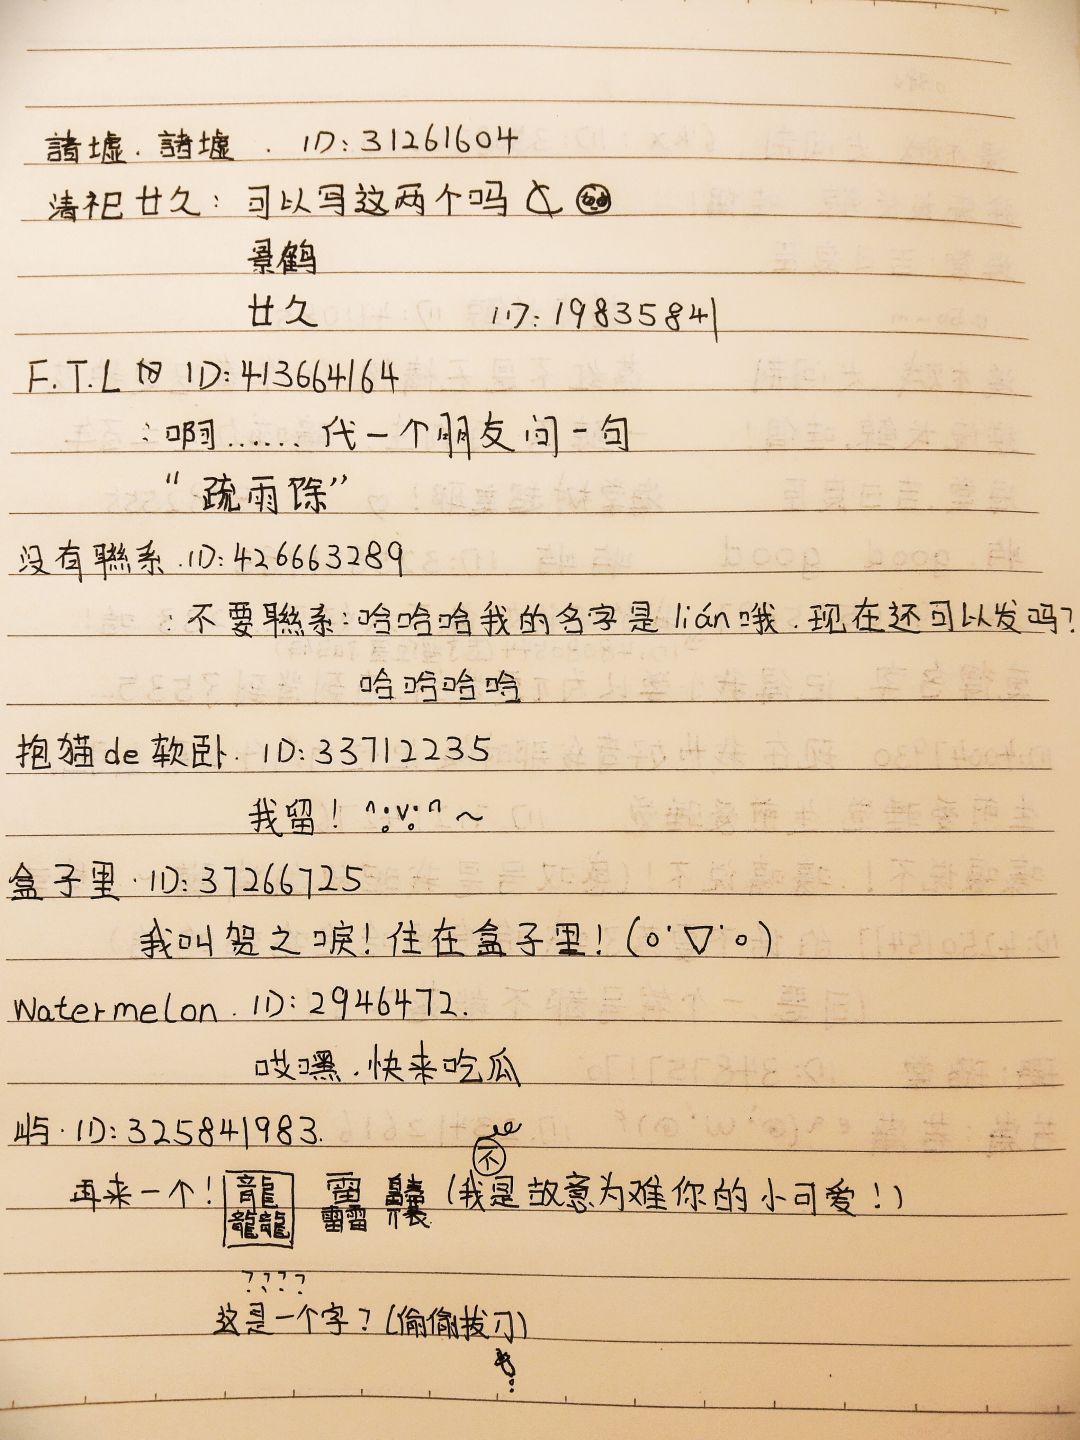 諸墟.諸墟. ID:31261604
清祀廿久:可以写这两个吗
景鹤
廿久 ID:19835841
F.T.L ID:413664164
:啊......代一个朋友问一句
“疏雨馀”
没有聯系.ID:426663289
:不要聯系:哈哈哈我的名字是lián哦.现在还可以发吗?
哈哈哈哈
抱猫de软卧. ID:33712235
我留!~
盒子里.ID:37266725
我叫贺之唳!住在盒子里!(o˙▽˙o)
Watermelon. ID:2946472.
哎嘿.快来吃瓜
屿.ID:325841983.
再来一个!龘 靐 (我不是故意为难你的小可爱!)
????
这是一个字?(偷偷拔刀)